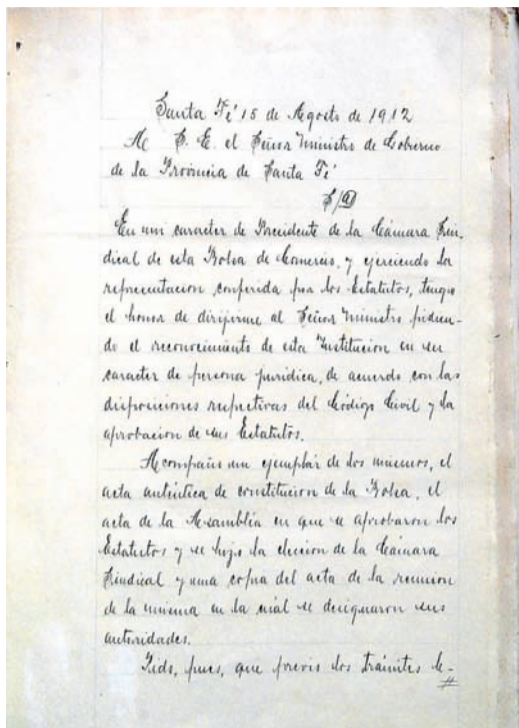 Santa Fé 15 de Agosto de 1912
A S. E. el Señor Ministro de Gobierno
de la Provincia de Santa Fé
S/D
En mi caracter de Presidente de la Cámara Sin-
dical de esta Bolsa de Comercio, y ejerciendo la
representacion conferida por los Estatutos, tengo
el honor de dirijirme al Señor Ministro pidien-
do el reconocimiento de esta Institucion en su
caracter de persona juridica, de acuerdo con las
disposiciones respectivas del Código Civil y la
aprobacion de sus Estatutos.
Acompaño un ejemplar de los mismos, el
acta auténtica de constitucion de la Bolsa, el
acta de la Asamblea en que se aprobaron los
Estatutos y se hizo la eleccion de la Cámara
Sindical y una copia del acta de la reunion
de la misma en la cual se designaron sus
autoridades.
Pido, pues, que previo los trámites le-